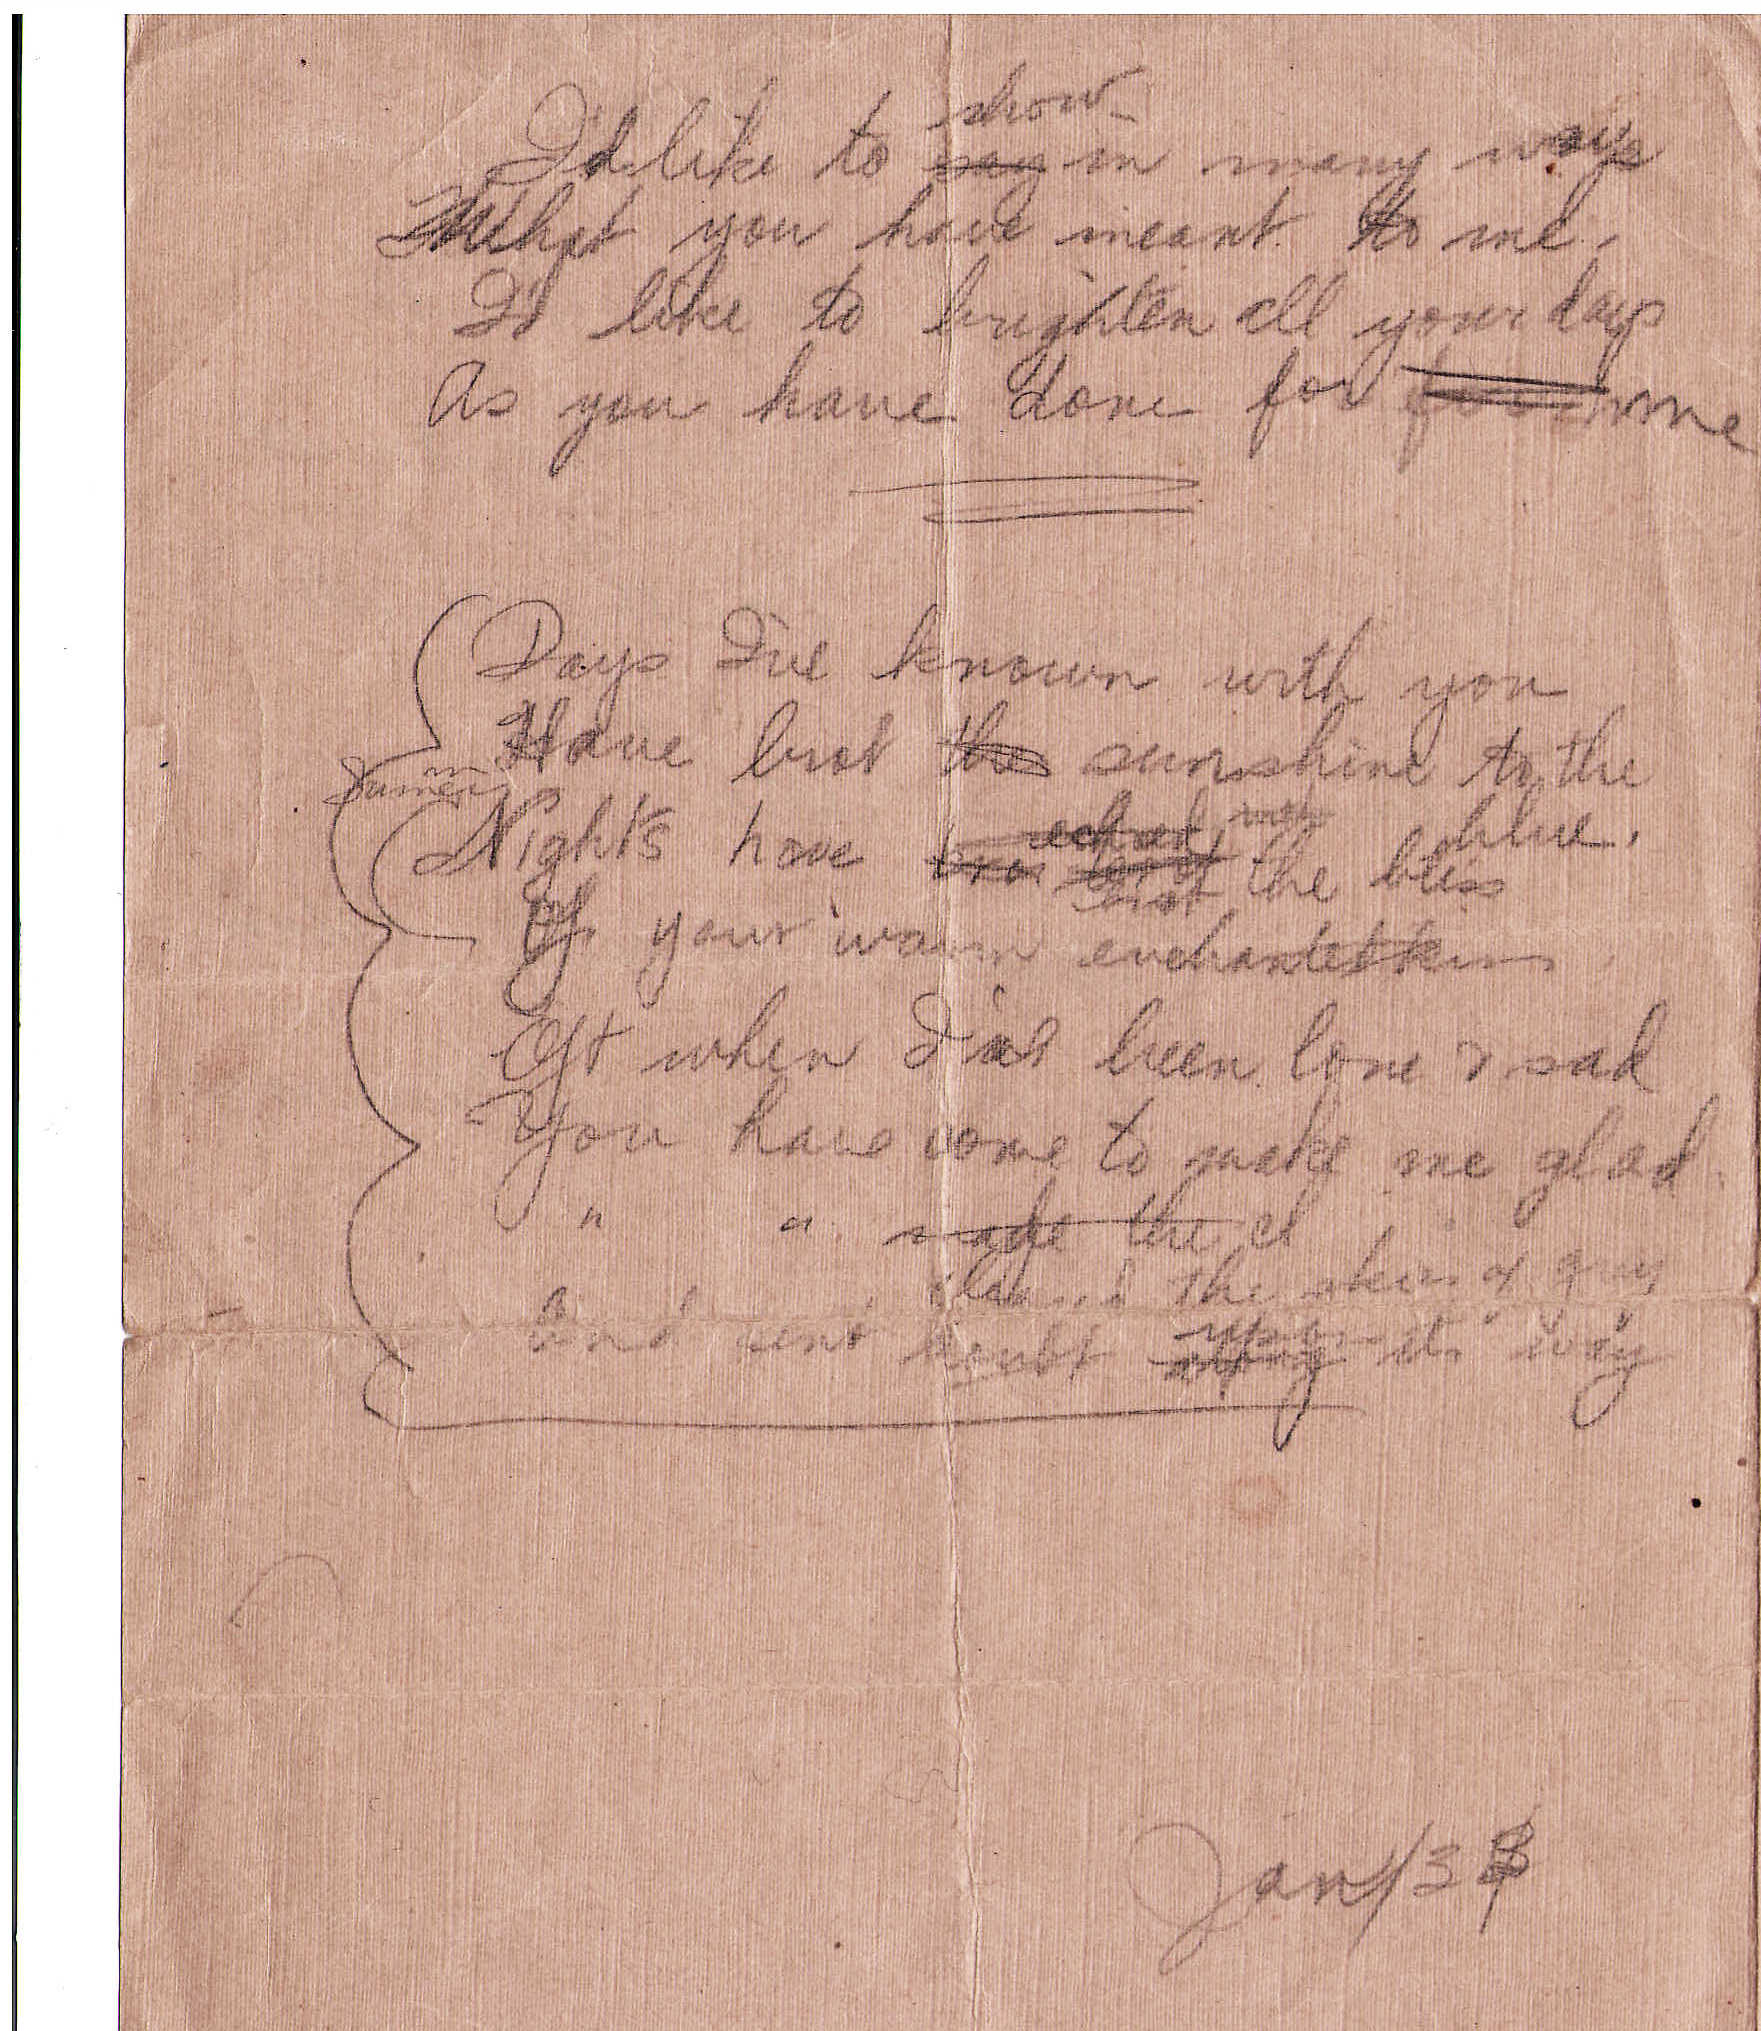 show
I'd like to say in many ways
What you have meant to me,
I'd like to brighten all your days
As you have done for me
Days I've known with you
Have lent the sunshine to the
blue.
Nights have echoed the bliss
Of your warm enchanted kiss
Oft when I've been lone & sad
You have come to make me glad
" " made the cl
the skies of gray
And sent doubt upon its way
Jan/3